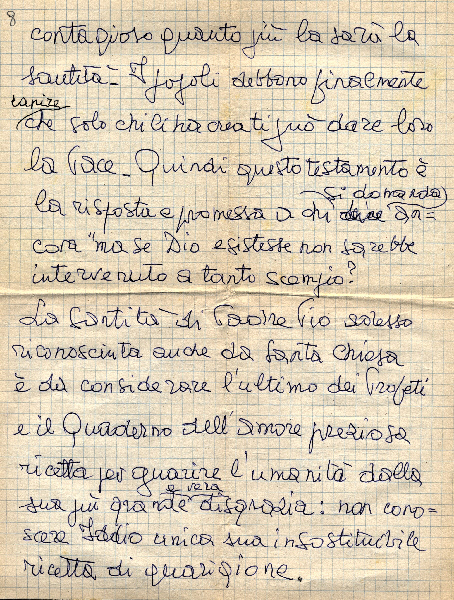 8
contagioso quanto più la sarà la
santità - I popoli debbono finalmente
capire
che solo chi li ha creati può dare loro
la Pace - Quindi questo testamento è
si domanda
la risposta e promessa a chi dice an=
cora "ma se Dio esistesse non sarebbe
intervenuto a tanto scempio?
La Santità di Padre Pio adesso
riconosciuta anche da Santa Chiesa
è da considerare l'ultimo dei Profeti
e il Quaderno dell'amore preziosa
ricetta per guarire l'umanità dalla
e vera
sua più grande disgrazia: non cono=
scere Iddio unica sua insostituibile
ricetta di guarigione.